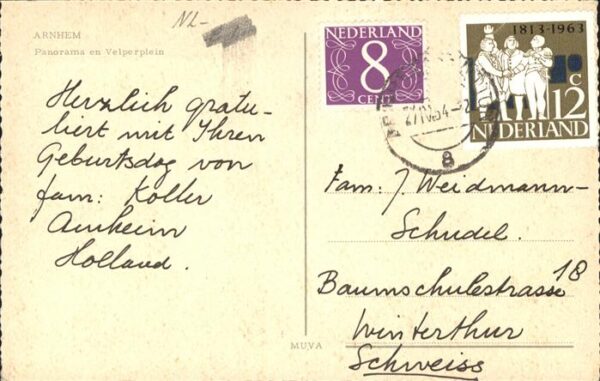 NL-
ARNHEM
Panorama en Velperplein
Herzlich gratu-
liert mit Ihren
Geburtsdag von
fam: Koller
Arnheim
Holland.
NEDERLAND
8
CENT
1813-1963
12 C
NEDERLAND
8
Fam: J. Weidmann-
Schudel.
Baumschulestrasse 18
Winterthur
Schweiss
MUVA